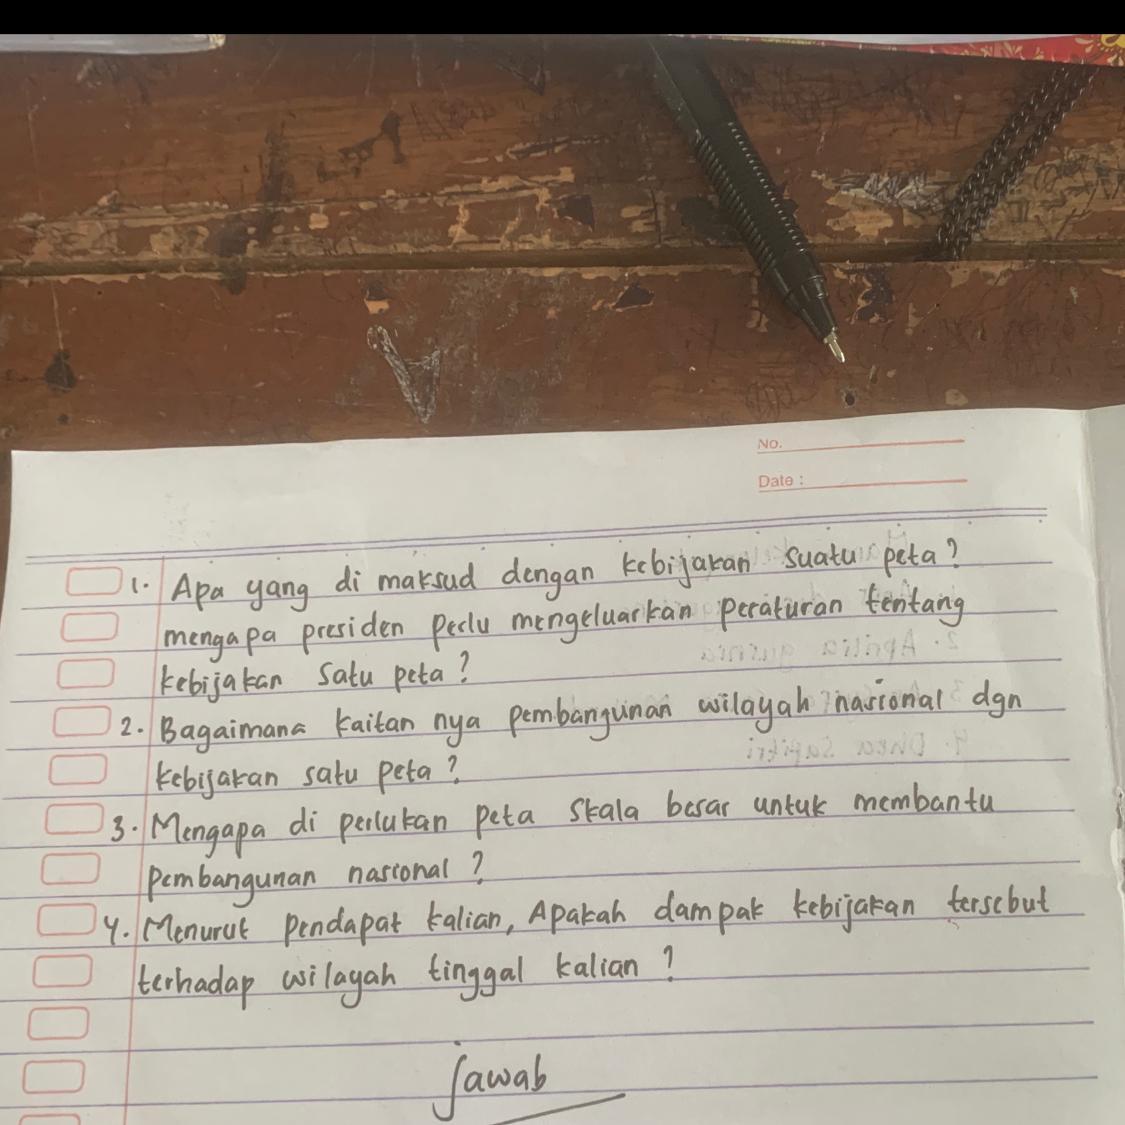 No.
Date :
1. Apa yang di maksud dengan kebijakan suatu peta?
mengapa presiden perlu mengeluarkan peraturan tentang
kebijakan satu peta?
2. Bagaimana kaitan nya pembangunan wilayah nasional dgn
kebijakan satu peta?
3. Mengapa di perlukan peta skala besar untuk membantu
pembangunan nasional?
4. Menurut pendapat kalian, Apakah dampak kebijakan tersebut
terhadap wilayah tinggal kalian?
Jawab